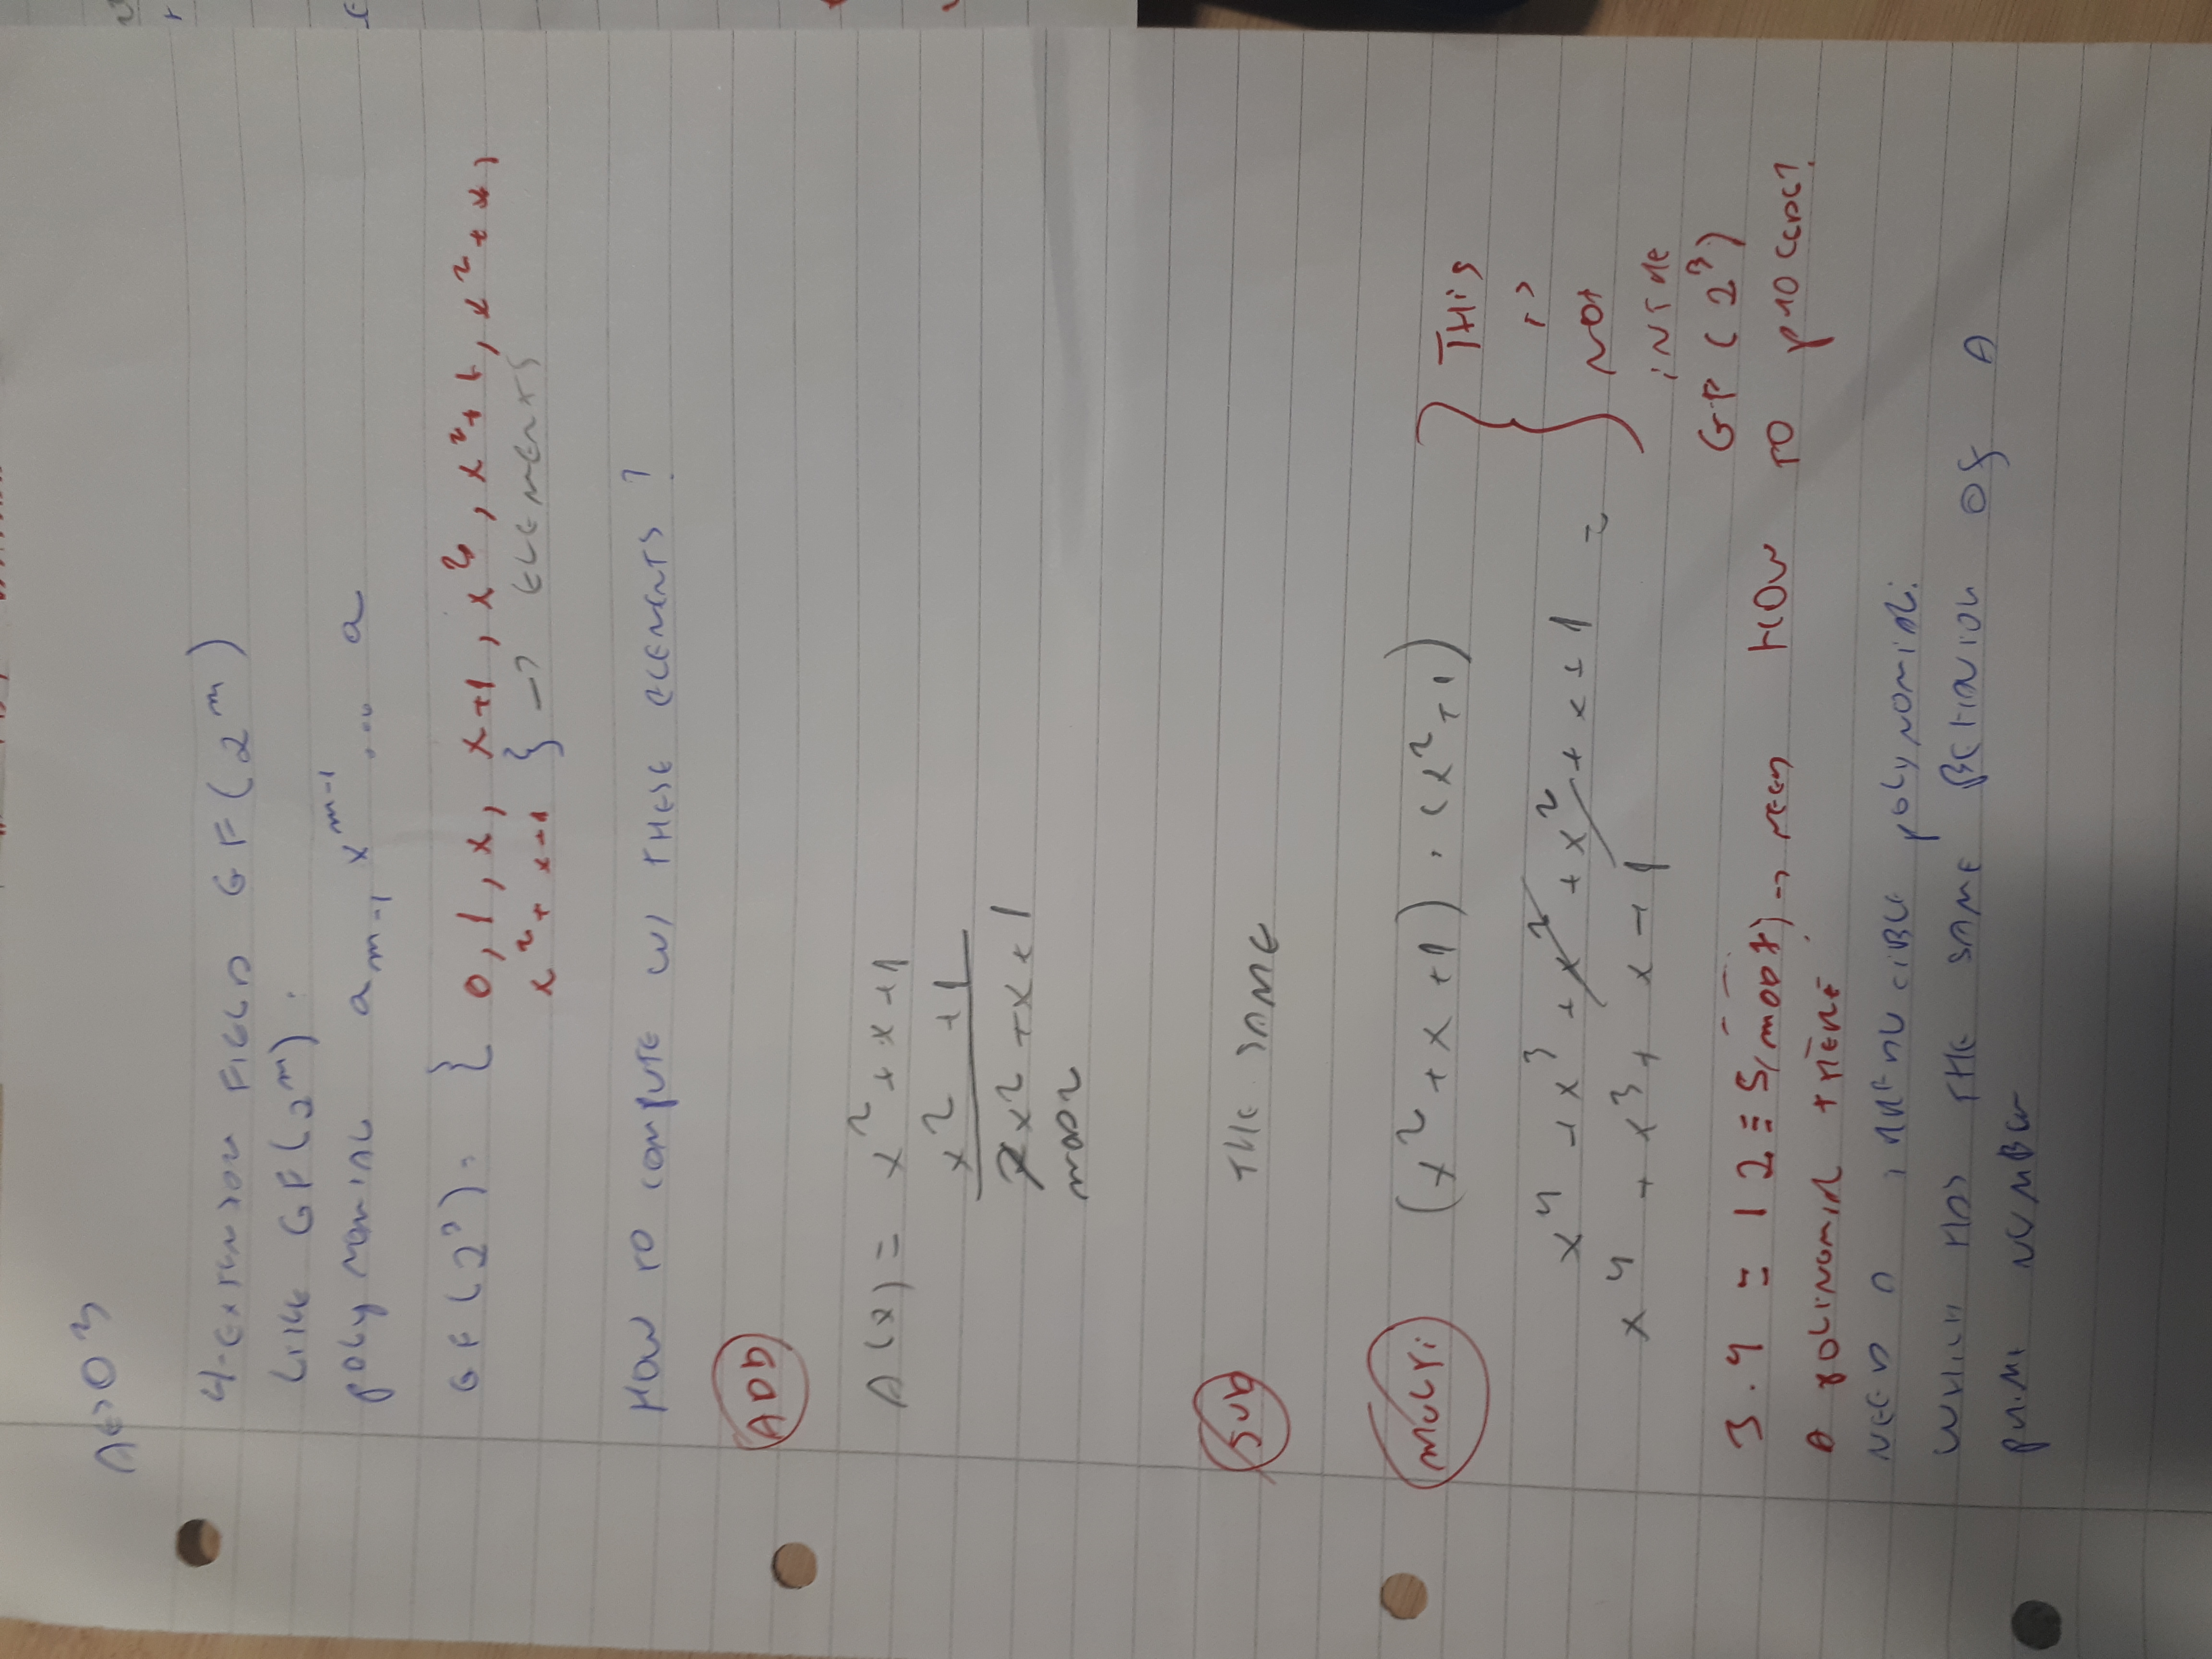 4-EXTENSION FIELD GF(2^m)
LIKE GF(2^m):
POLYNOMIAL a_{m-1} x^{m-1} ... a
GF(2^3) = { 0, 1, x, x+1, x^2, x^2+1, x^2+x,
x^2+x+1 } -> ELEMENTS
HOW TO COMPUTE W/ THESE ELEMENTS?
ADD
A(x) = x^2 + x + 1
x^2 + 1
2x^2 + x + 1
MOD 2
SUB THE SAME
MULTI (x^2 + x + 1) · (x^2 + 1)
x^4 + x^3 + x^2 + x^2 + x + 1 =
x^4 + x^3 + x + 1
THIS
IS
NOT
INSIDE
GF(2^3)
HOW TO PROCEDE?
3.4 = 12 ≡ 5(MOD 7) -> NEED
A POLINOMIAL THERE
NEED A IRREDUCIBLE POLYNOMIAL:
WHICH HAS THE SAME BEHAVIOR OF A
PRIME NUMBER